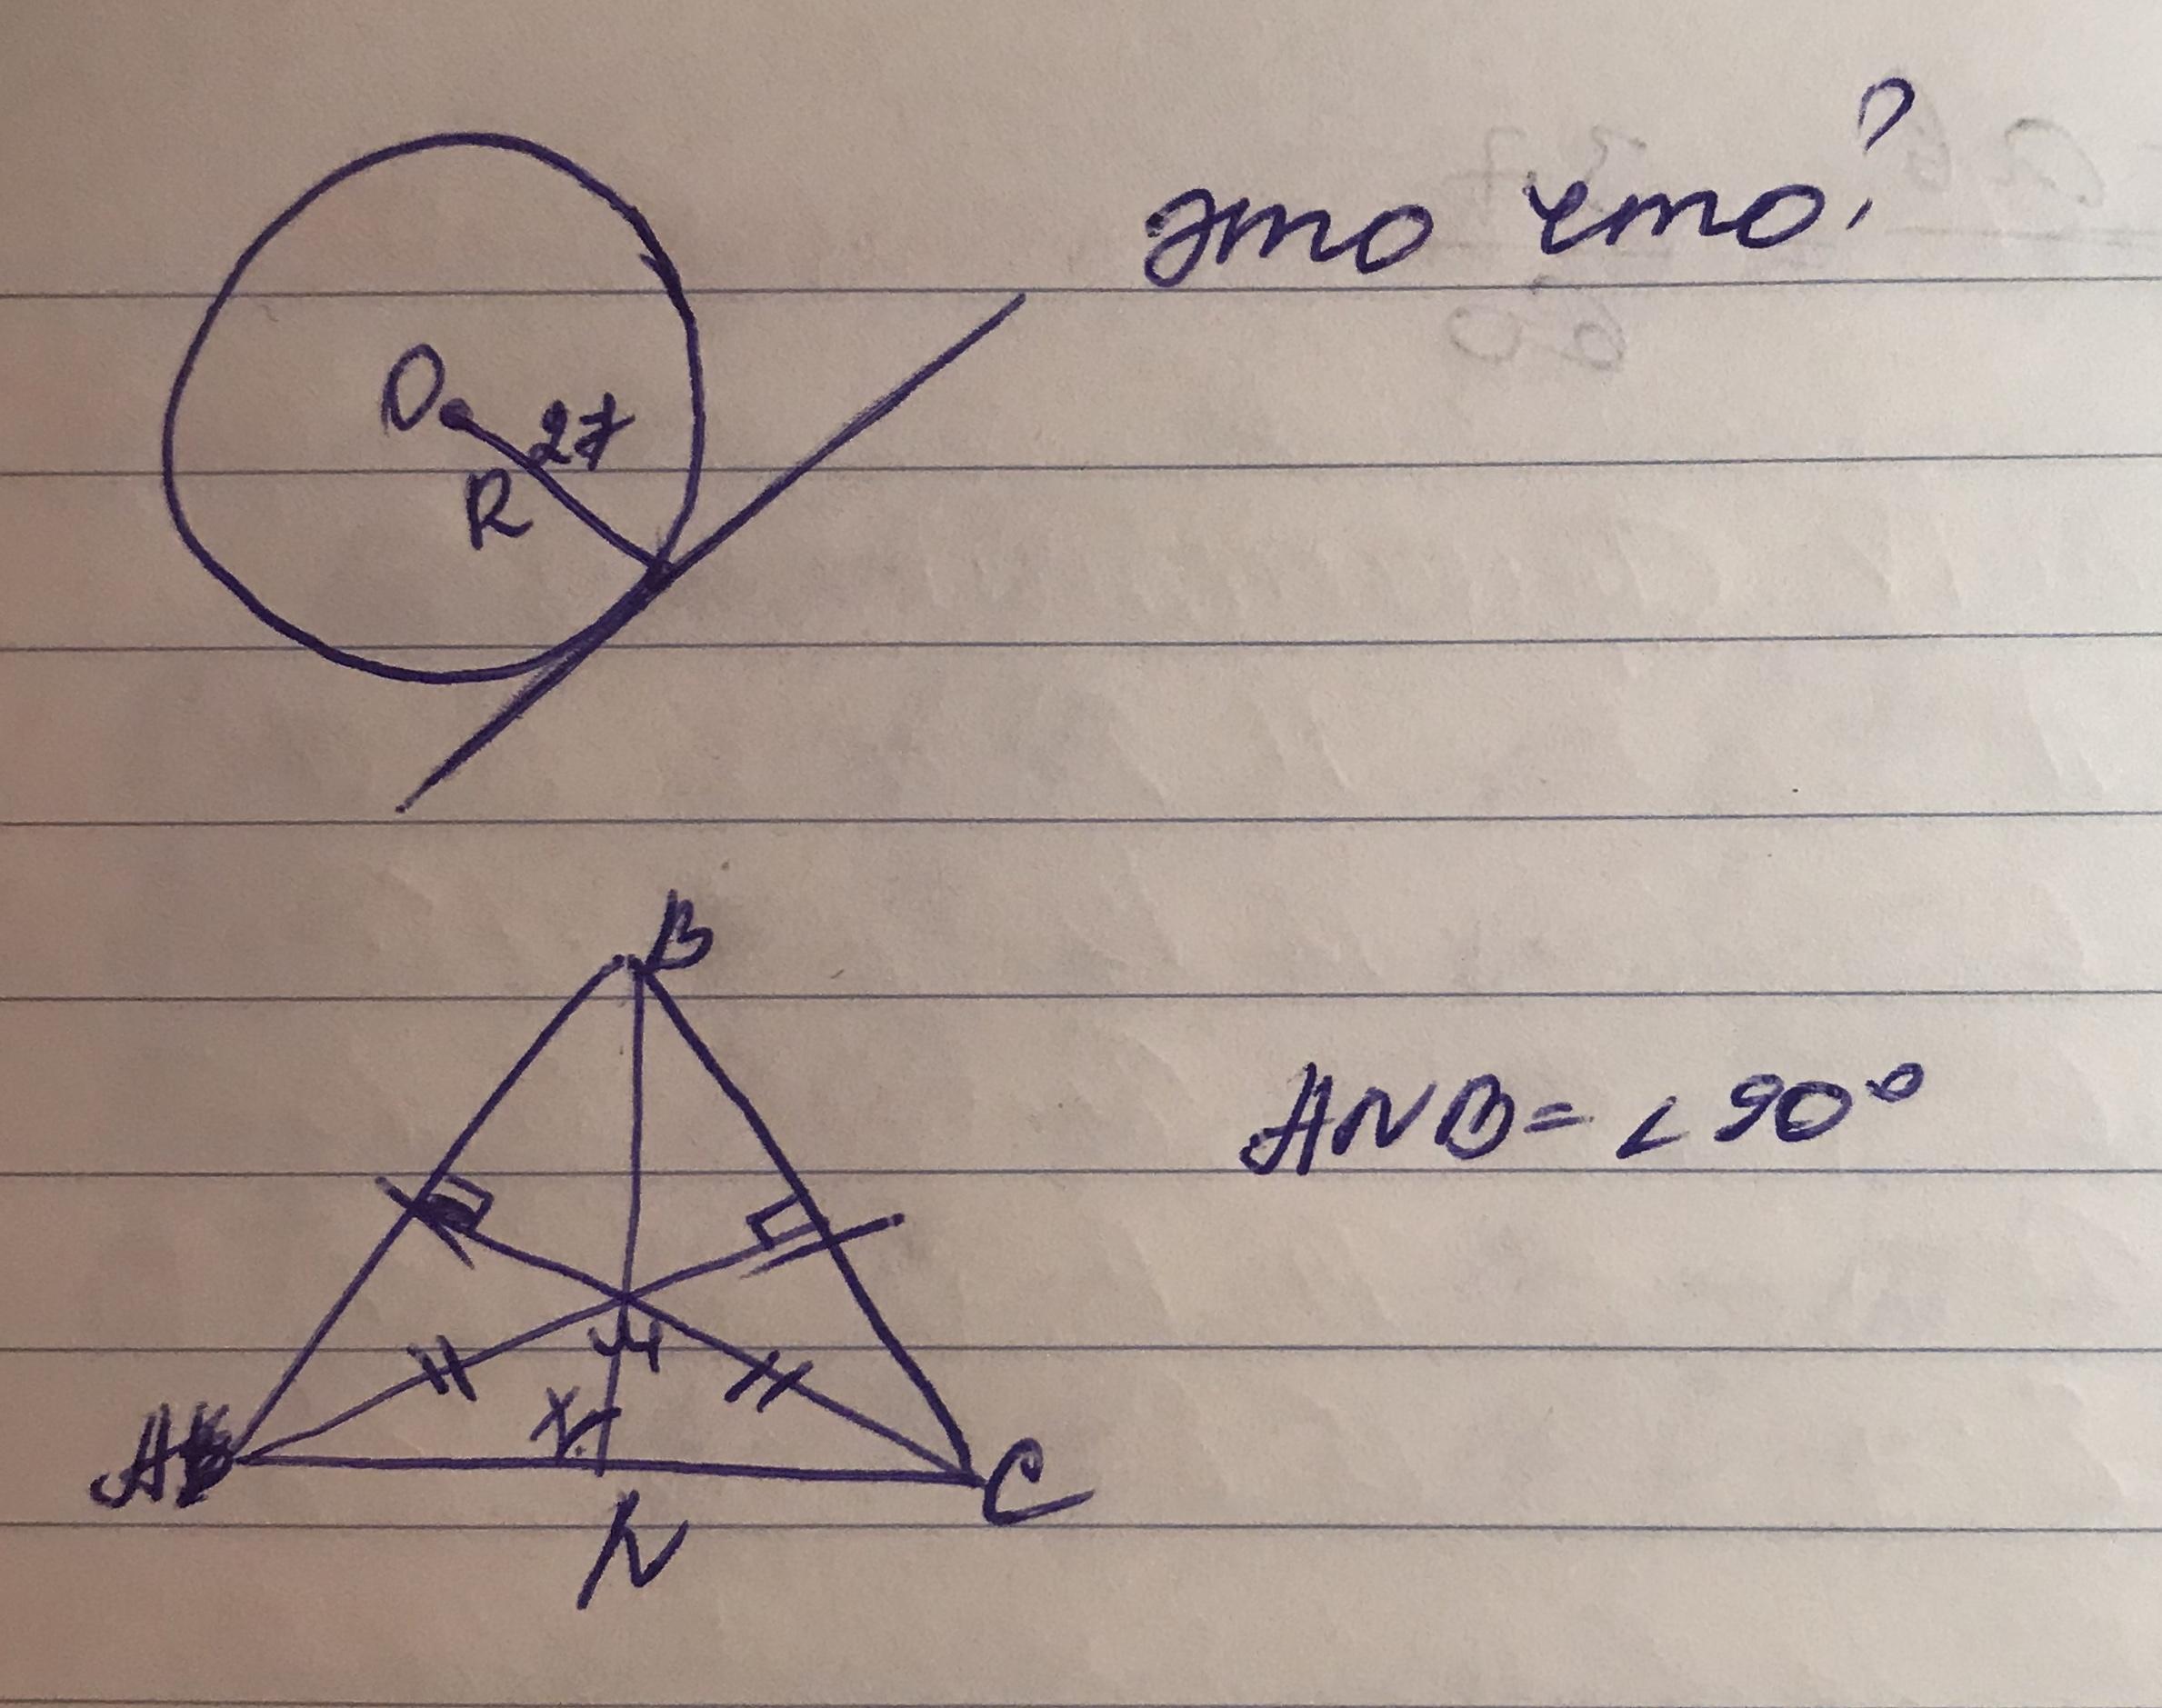 это что?
O
27
R
B
ANB = ∠ 90°
M
x
A
C
N